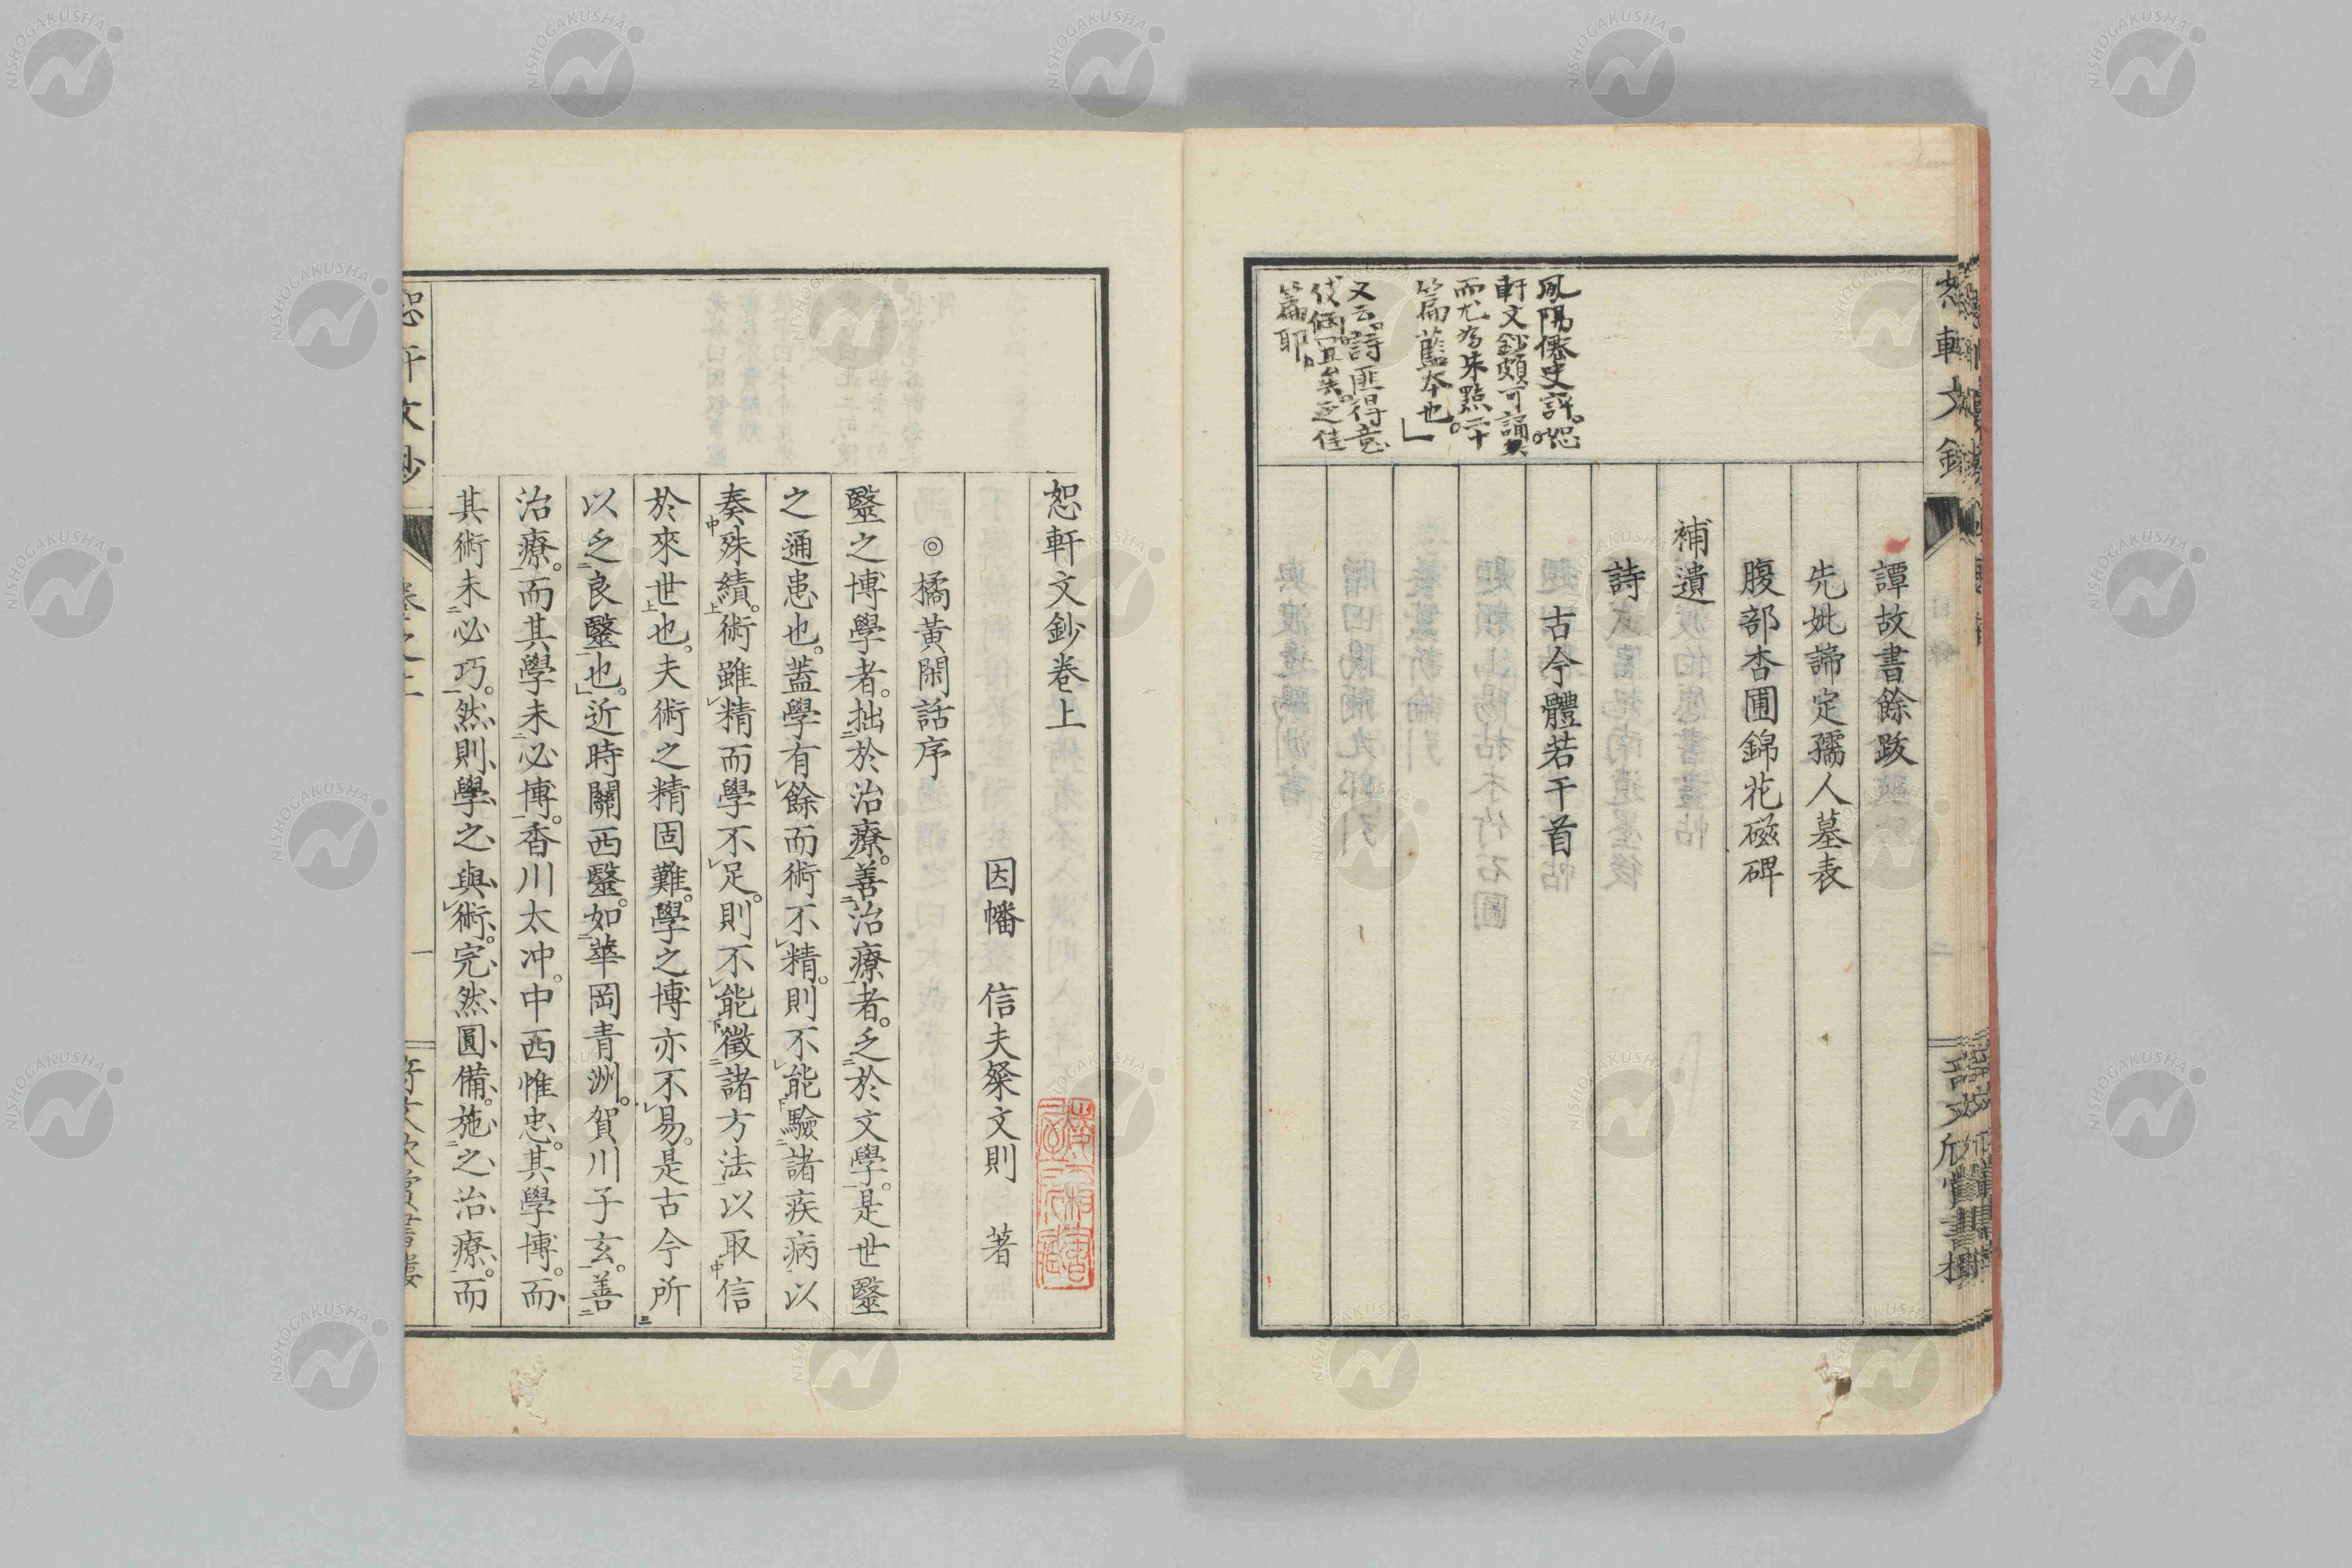 譚故書餘跋
先妣諦定孺人墓表
腹部杏圃錦花磁碑
補遺
詩
古今體若干首
鳳陽僊史評。恕
軒文鈔頗可誦矣。
而尤為朱點二十
篇藍本也。」
又云。詩匪得意
伎倆。宜矣乏佳
篇耶。
恕軒文鈔卷上
因幡 信夫粲文則 著
◎橘黃閑話序
毉之博學者。拙於治療。善治療者。乏於文學。是世毉
之通患也。蓋學有餘而術不精。則不能驗諸疾病以
奏殊績。術雖精而學不足。則不能徵諸方法以取信
於來世也。夫術之精固難。學之博亦不易。是古今所
以乏良毉也。近時關西毉。如華岡青洲。賀川子玄。善
治療。而其學未必博。香川太冲。中西惟忠。其學博。而
其術未必巧。然則學之與術。完然圓備。施之治療。而